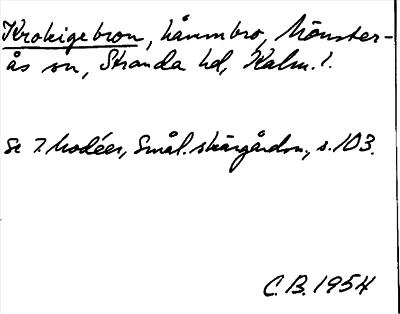 Krokigebron, hamnbro, Mönster-
ås sn, Stranda hd, Kalm. l.
Se T. Modéer, Smål. skärgårdsn., s. 103.
C.B. 1954